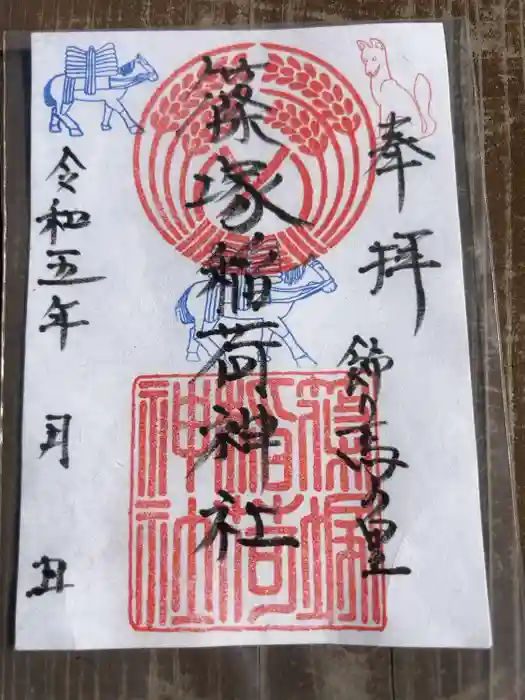 奉拝
飾り馬の里
篠塚稲荷神社
篠塚
稲荷
神社
令和五年 月 日